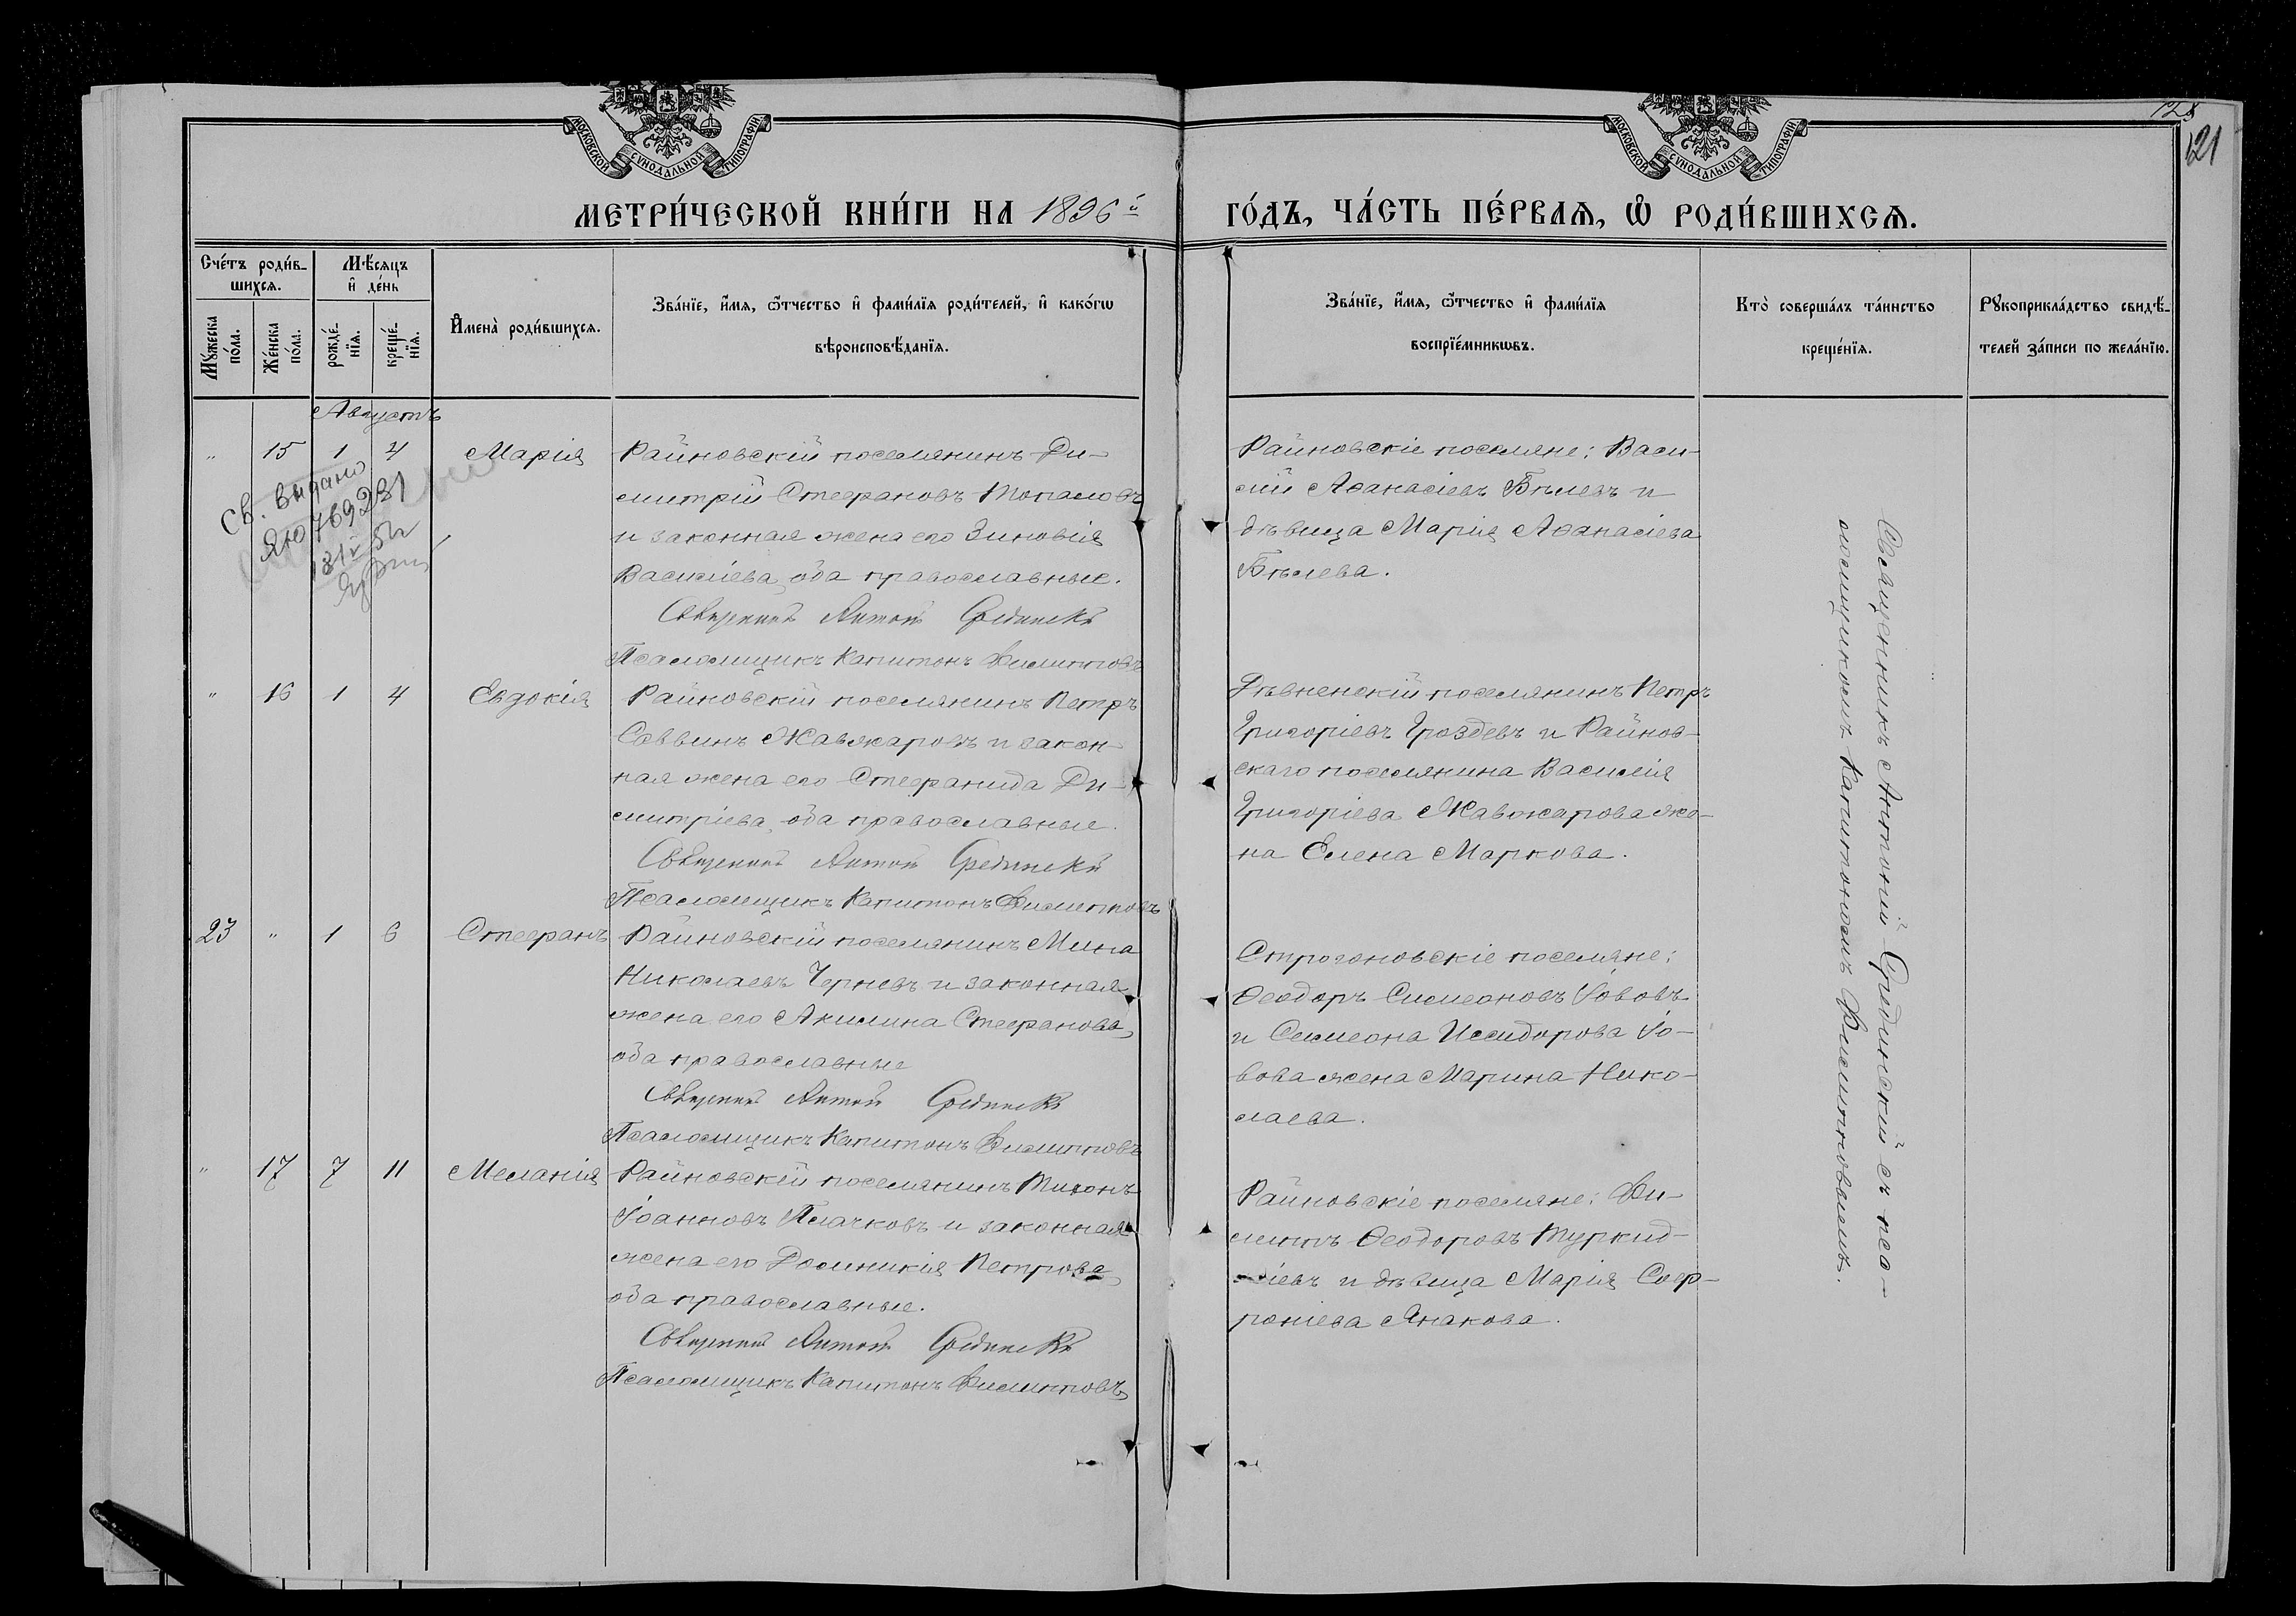 МОСКОВСКОЙ СУНОДАЛЬНОЙ ТИПОГРАФІИ
МОСКОВСКОЙ СУНОДАЛЬНОЙ ТИПОГРАФІИ
121
МЕТРИ́ЧЕСКОЙ КНИ́ГИ НА 1896й ГО́ДЪ, ЧА́СТЬ ПЕ́РВАѦ, Ѡ҆ РОДИ́ВШИХСѦ.
Сче́тъ роди́в-
шихсѧ.
Мꙋ́жеска
по́ла.
Же́нска
по́ла.
Мѣ́сѧцъ
и҆ де́нь
рожде́-
нїѧ.
креще́-
нїѧ.
И҆мена̀ роди́вшихсѧ.
Зва́нїе, и҆́мѧ, ѻ҆́тчество и҆ фами́лїѧ роди́телей, и҆ како́гѡ
вѣроисповѣ́данїѧ.
Зва́нїе, и҆́мѧ, ѻ҆́тчество и҆ фами́лїѧ
воспрїе́мникѡвъ.
Кто̀ соверша́лъ та́инство
креще́нїѧ.
Рꙋкоприкла́дство свидѣ́-
телей за́писи по жела́нїю.
Августъ
" 15 1 4 Марія
Райновскій поселянинъ Ди-
митрій Стефановъ Топаловъ
и законная жена его Зиновія
Василіева, оба православные.
Священникъ Антоній Срединскій
Псаломщикъ Капитонъ Филипповъ
Райновскіе поселяне: Васи-
лій Аѳанасіевъ Бѣлевъ и
дѣвица Марія Аѳанасіева
Бѣлева.
Св. выдано
ЯЮ 769231
" 16 1 4 Евдокія
Райновскій поселянинъ Петръ
Саввинъ Жавжаровъ и закон-
ная жена его Стефанида Ди-
митріева, оба православные.
Священникъ Антоній Срединскій
Псаломщикъ Капитонъ Филипповъ
Дѣвненскій поселянинъ Петръ
Григоріевъ Гроздевъ и Райнов-
скаго поселянина Василія
Григоріева Жавжарова же-
на Елена Маркова.
23 " 1 6 Стефанъ
Райновскій поселянинъ Мина
Николаевъ Черневъ и законная
жена его Акилина Стефанова,
оба православные
Священникъ Антоній Срединскій
Псаломщикъ Капитонъ Филипповъ
Строгоновскіе поселяне:
Ѳеодоръ Симеоновъ Іововъ
и Симеона Исидорова Іо-
вова жена Марина Нико-
лаева.
" 17 7 11 Меланія
Райновскій поселянинъ Тихонъ
Іоанновъ Плачковъ и законная
жена его Домникія Петрова,
оба православные.
Священникъ Антоній Срединскій
Псаломщикъ Капитонъ Филипповъ
Райновскіе поселяне: Фи-
липпъ Ѳеодоровъ Туркид-
жіевъ и дѣвица Марія Соф-
роніева Янакова.
Священникъ Антоній Срединскій съ пса-
ломщикомъ Капитономъ Филипповымъ.